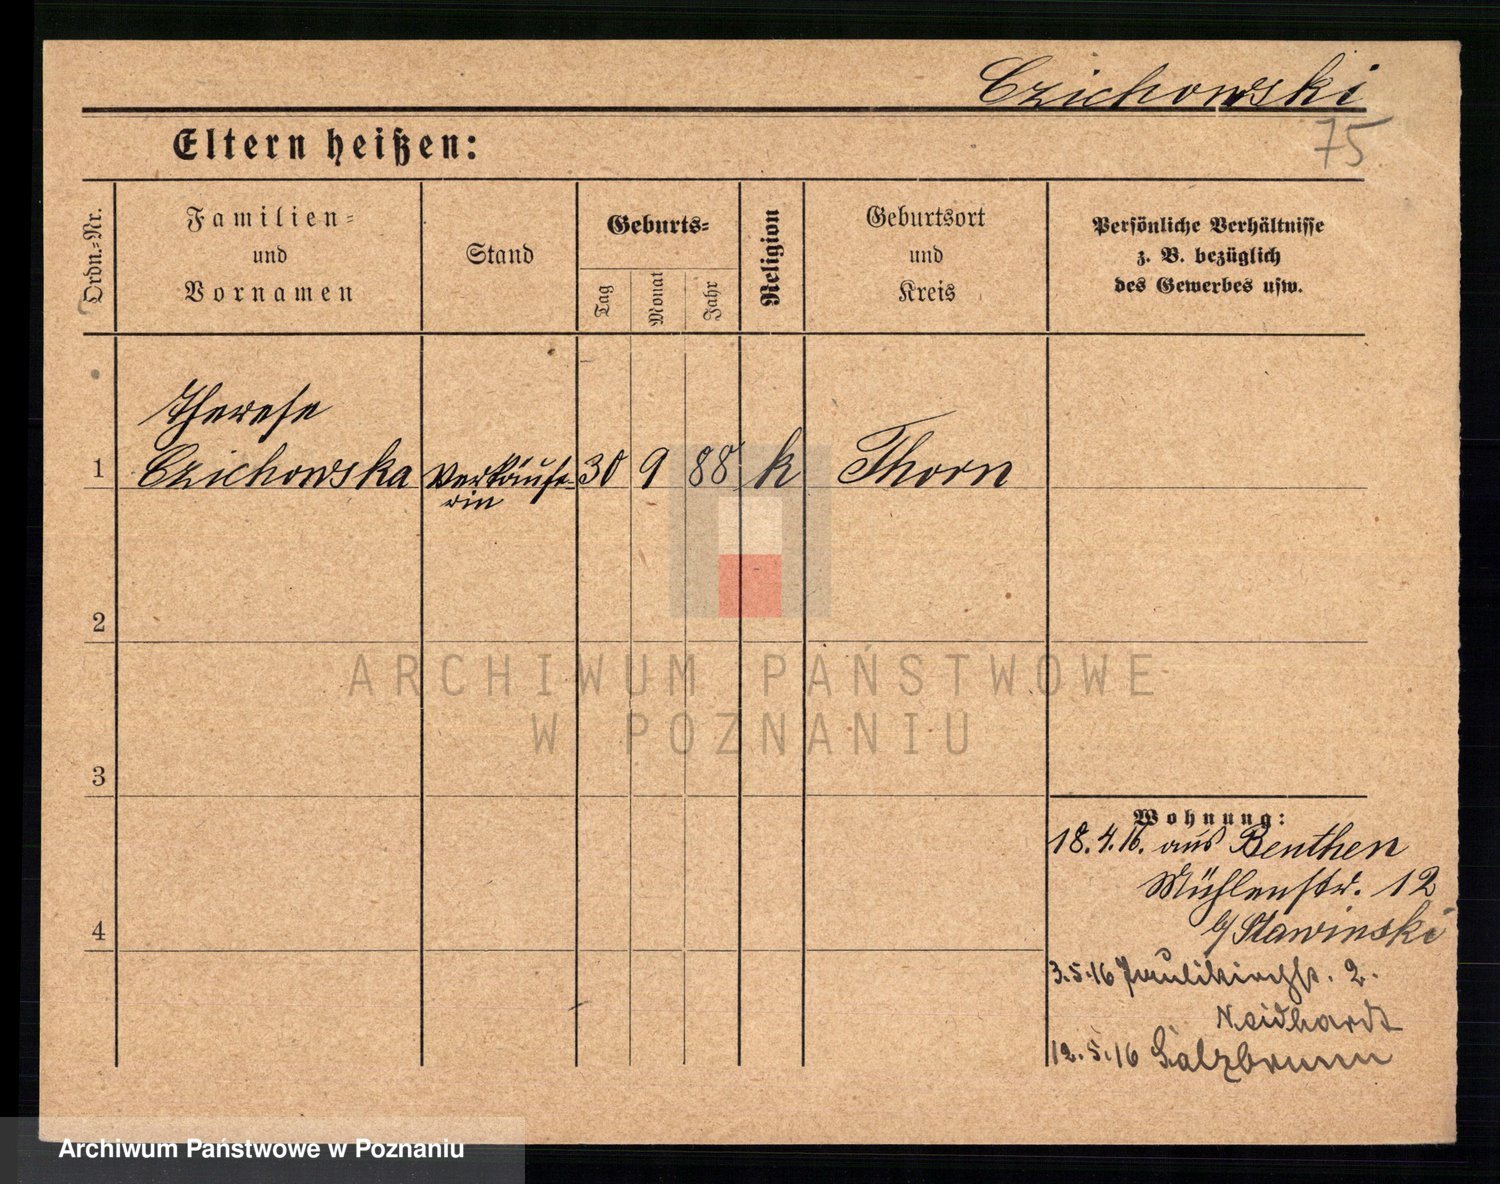 Czichowski
75
Eltern heißen:
Ordn.-Nr.
Familien-
und
Vornamen
Stand
Geburts-
Tag
Monat
Jahr
Religion
Geburtsort
und
Kreis
Persönliche Verhältnisse
z. B. bezüglich
des Gewerbes usw.
Therese
1 Czichowska Verkäufe- 30 9 88 k Thorn
rin
2
3
4
Wohnung:
18.4.16. aus Beuthen
Mühlenstr. 12
b/ Stawinski
3.5.16 Paulikirchstr. 2.
Neidhardt
12.5.16 Salzbrunn
ARCHIWUM PAŃSTWOWE
W POZNANIU
Archiwum Państwowe w Poznaniu